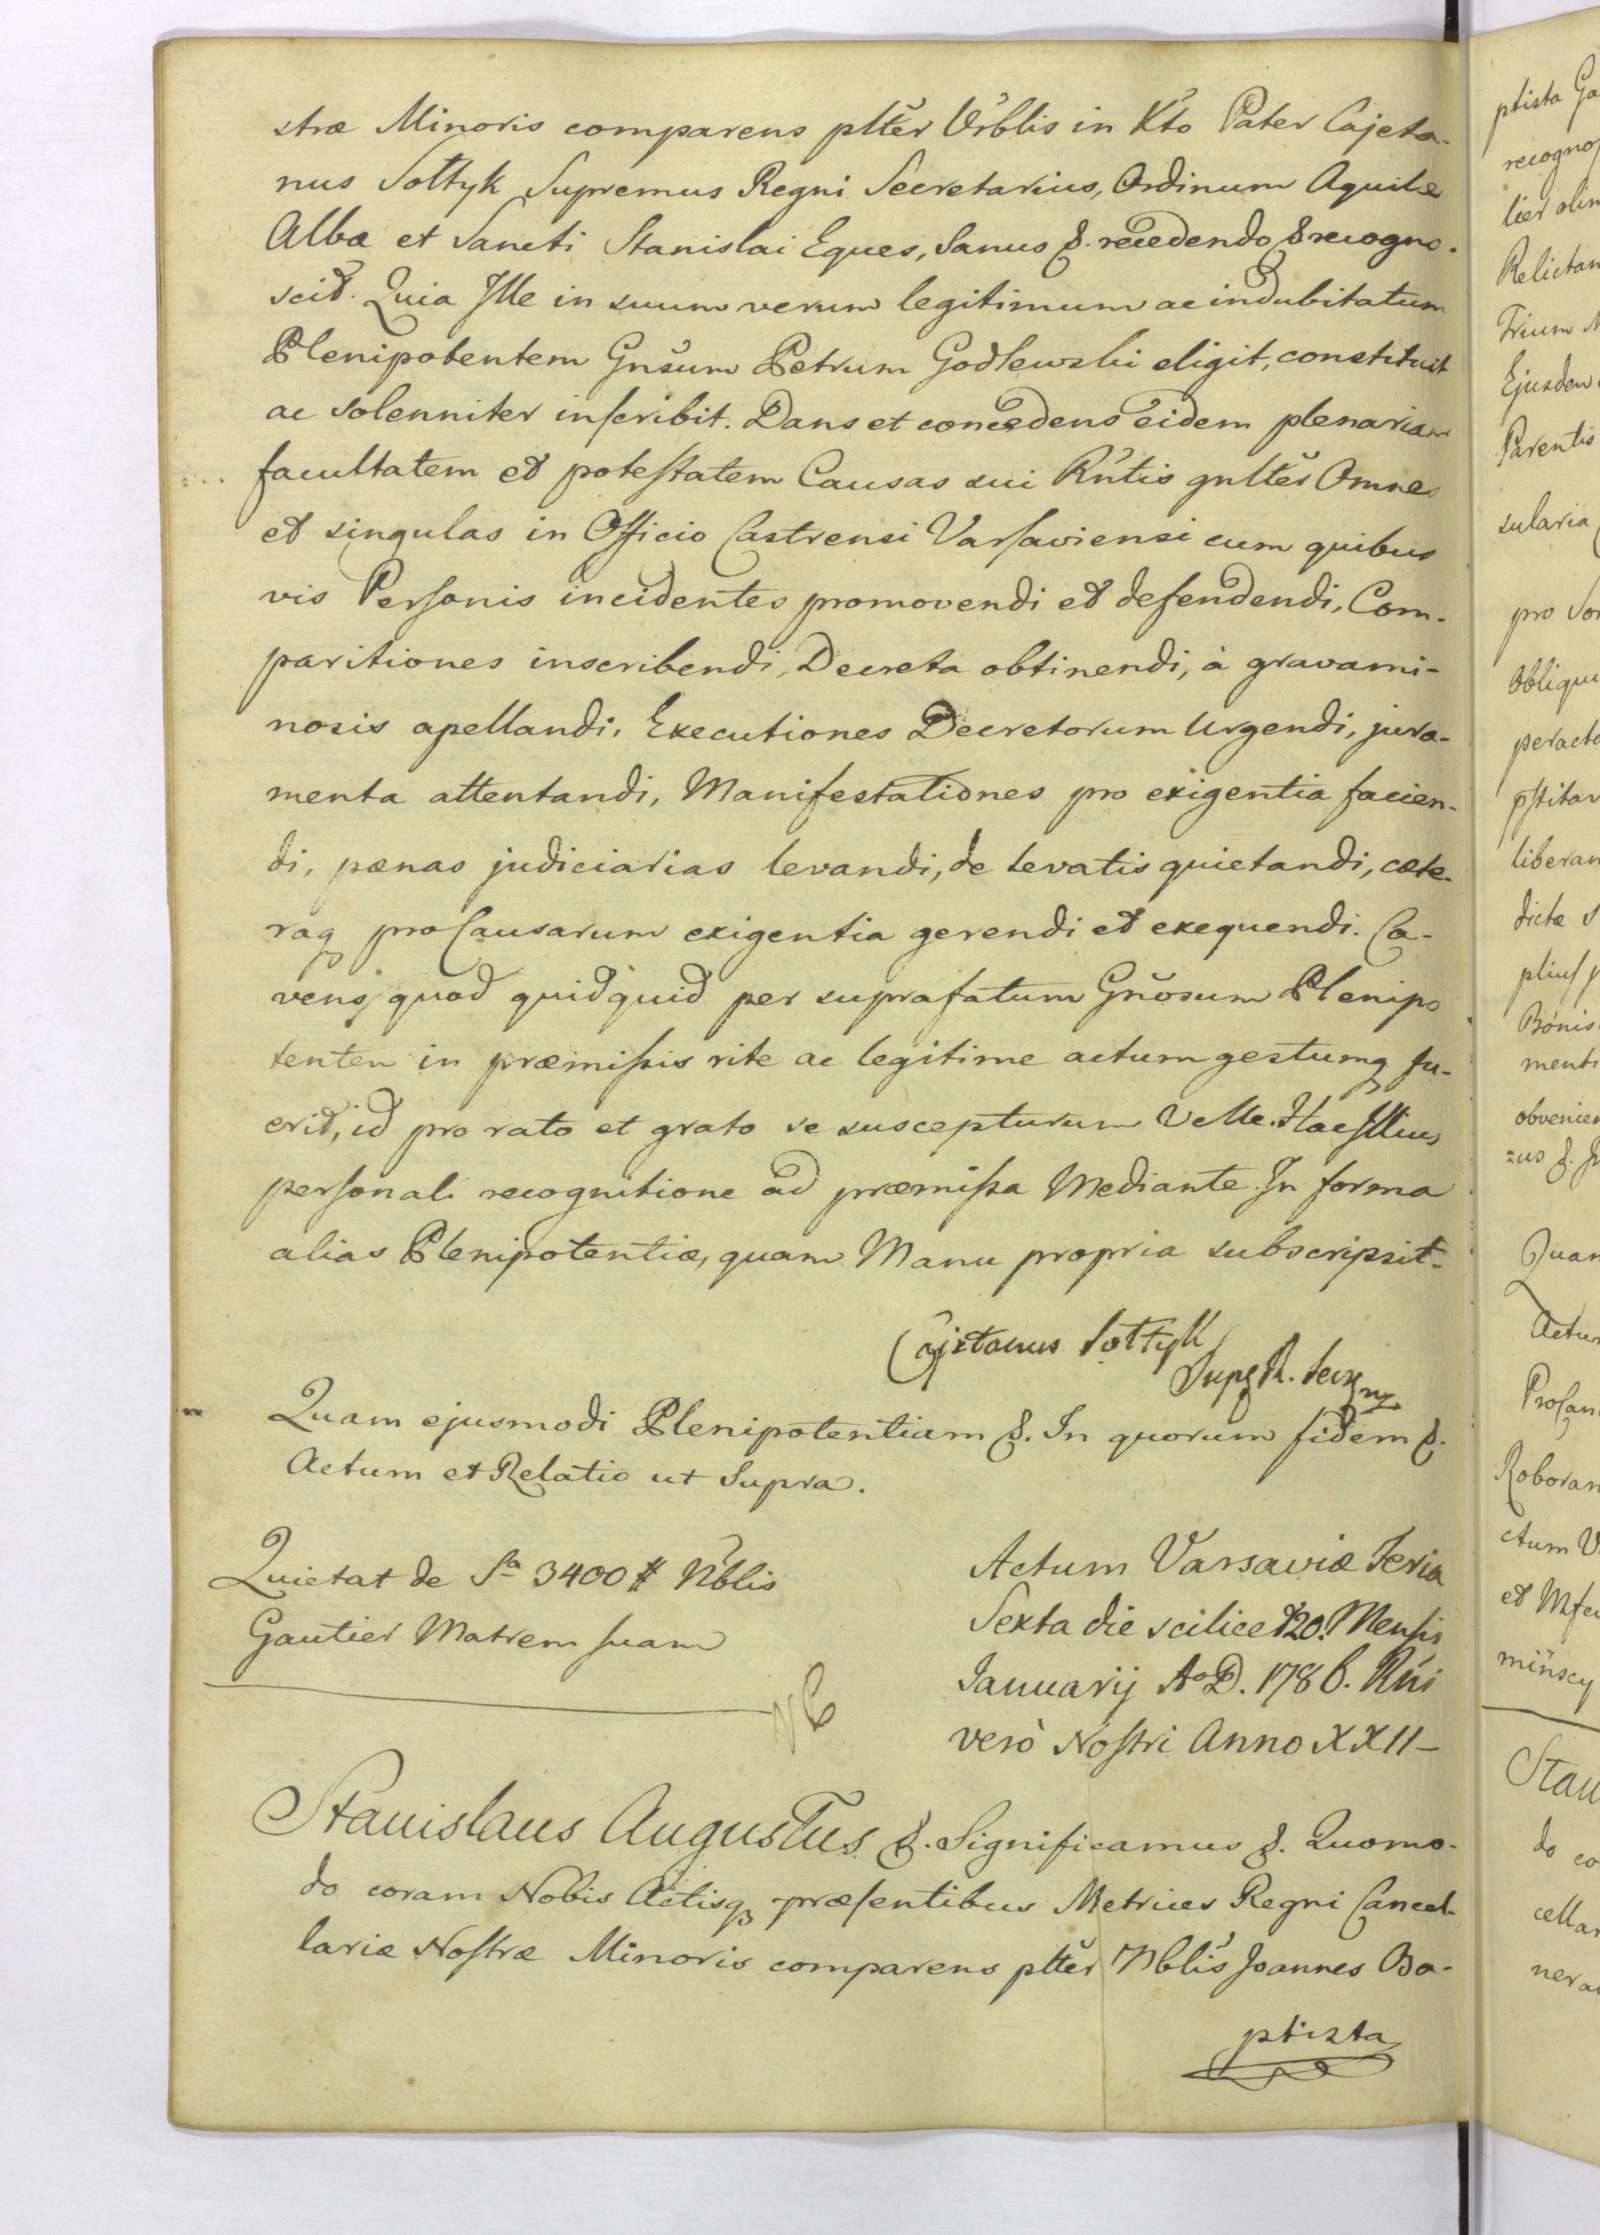 stræ Minoris comparens pltĕr Vrblis in Xto Pater Cajeta-
nus Sołtyk Supremus Regni Secretarius, Ordinum Aquilæ
Albæ et Sancti Stanislai Eques, Sanus &. recedendo & recogno-
scit. Quia Ille in suum verum legitimum ac indubitatum
Plenipotentem Gnsum Petrum Godlewski eligit, constituit
ac solenniter inscribit. Dans et concedens eidem plenariam
facultatem et potestatem Causas sui Rntis gnltĕs Omnes
et singulas in Officio Castrensi Varsaviensi cum quibus
vis Personis incidentes promovendi et defendendi, Com-
paritiones inscribendi, Decreta obtinendi, à gravami-
nosis apellandi, Executiones Decretorum urgendi, jura-
menta attentandi, Manifestationes pro exigentia facien-
di, pænas judiciarias levandi, de levatis quietandi, cæte-
raq pro Causarum exigentia gerendi et exequendi. Ca-
vens, quod quidquid per suprafatum Gnosum Plenipo
tentem in præmissis rite ac legitime actum gestumq fu-
erit, id pro rato et grato se suscepturum Velle. Hac Illius
personali recognitione ad præmissa Mediante. In forma
alias Plenipotentiæ, quam Manu propria subscripsit-
Cajetanus Sołtyk
Sup R. Secr
Quam ejusmodi Plenipotentiam &. In quorum fidem &.
Actum et Relatio ut Supra.
Quietat de Sa 3400 # Nblis
Gautier Matrem suam
Actum Varsaviæ Feria
Sexta die scilicet 20. Mensis
Januarij Ao D. 1786. Rni
verò Nostri Anno XXII-
Stanislaus Augustus &. Significamus &. Quomo-
do coram Nobis Actisq præsentibus Metrices Regni Cancel-
lariæ Nostræ Minoris comparens pltĕr Nblis Joannes Ba-
ptista
ptista Ga
recognos
tier olim
Relictam
Trium
Ejusdem
Parentis
sularia
pro
Oblique
peracto
liberan
dictæ
Bonis
menti
obvenien
Quam
Actum
Roboran
ctum V
et
Stan
do co
cellar